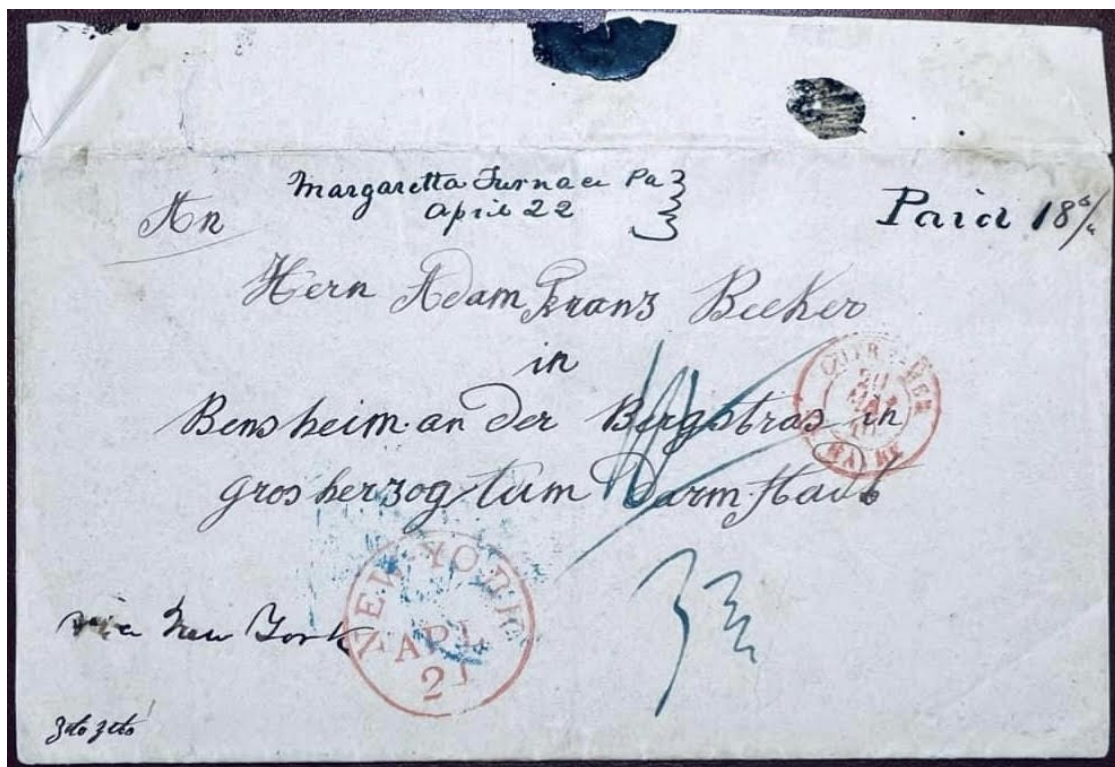 Margaretta Furnace Pa
April 22
Paid 18 3/4
An
Hern Adam Franz Becker
in
Bensheim an der Bergstras in
gros herzogtum Darmstadt
NEW YORK
APL
via New York